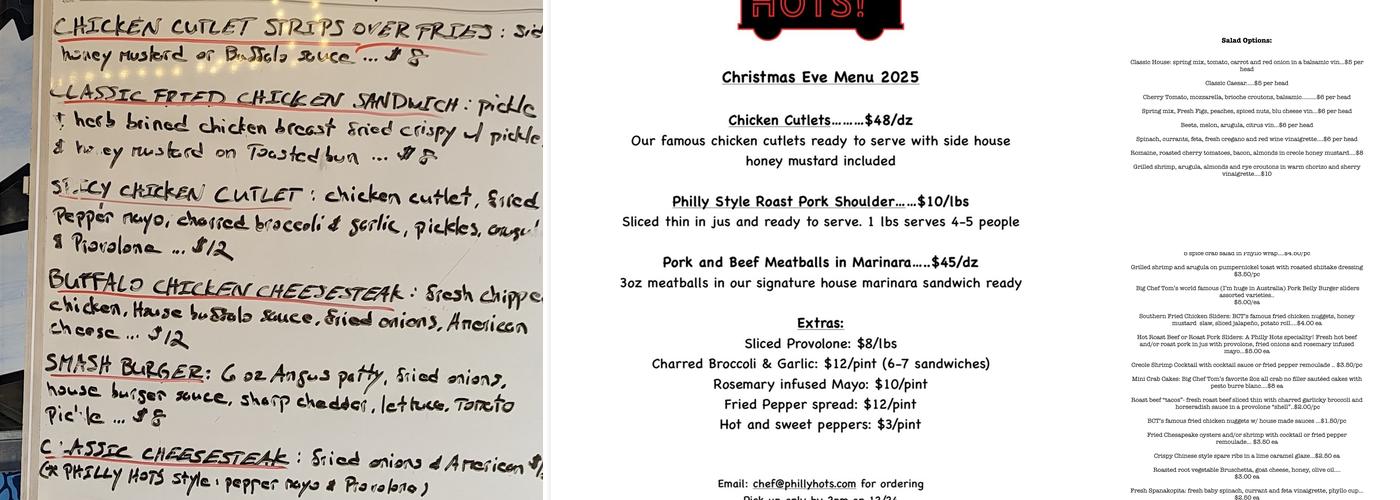 CHICKEN CUTLET STRIPS OVER FRIES: sid
honey mustard or Buffalo sauce ... $8
CLASSIC FRIED CHICKEN SANDWICH: pickle
& herb brined chicken breast fried crispy w/ pickle,
& honey mustard on Toasted bun ... $8
SPICY CHICKEN CUTLET: chicken cutlet, fried
Pepper mayo, charred broccoli & garlic, pickles,
& Provolone ... $12
BUFFALO CHICKEN CHEESESTEAK: fresh chippe
chicken, House buffalo sauce, fried onions, American
cheese ... $12
SMASH BURGER: 6 oz Angus patty, fried onions,
house burger sauce, sharp cheddar, lettuce, Tomato
Pickle ... $8
CLASSIC CHEESESTEAK: fried onions & American
(* PHILLY HOTS style: pepper mayo & Provolone)
HOTS!
Christmas Eve Menu 2025
Chicken Cutlets………$48/dz
Our famous chicken cutlets ready to serve with side house
honey mustard included
Philly Style Roast Pork Shoulder……$10/lbs
Sliced thin in jus and ready to serve. 1 lbs serves 4-5 people
Pork and Beef Meatballs in Marinara…..$45/dz
3oz meatballs in our signature house marinara sandwich ready
Extras:
Sliced Provolone: $8/lbs
Charred Broccoli & Garlic: $12/pint (6-7 sandwiches)
Rosemary infused Mayo: $10/pint
Fried Pepper spread: $12/pint
Hot and sweet peppers: $3/pint
Email: chef@phillyhots.com for ordering
Pick up only by 2pm on 12/24
Salad Options:
Classic House: spring mix, tomato, carrot and red onion in a balsamic vin...$5 per
head
Classic Caesar....$5 per head
Cherry Tomato, mozzarella, brioche croutons, balsamic.........$6 per head
Spring mix, Fresh Figs, peaches, spiced nuts, blu cheese vin...$6 per head
Beets, melon, arugula, citrus vin...$6 per head
Spinach, currants, feta, fresh oregano and red wine vinaigrette....$6 per head
Romaine, roasted cherry tomatoes, bacon, almonds in creole honey mustard....$8
Grilled shrimp, arugula, almonds and rye croutons in warm chorizo and sherry
vinaigrette....$10
5 spice crab salad in Phyllo wrap....$4.00/pc
Grilled shrimp and arugula on pumpernickel toast with roasted shiitake dressing
$3.50/pc
Big Chef Tom's world famous (I'm huge in Australia) Pork Belly Burger sliders
assorted varieties..
$5.00/ea
Southern Fried Chicken Sliders: BCT's famous fried chicken nuggets, honey
mustard slaw, sliced jalapeño, potato roll....$4.00 ea
Hot Roast Beef or Roast Pork Sliders: A Philly Hots speciality! Fresh hot beef
and/or roast pork in jus with provolone, fried onions and rosemary infused
mayo...$5.00 ea
Creole Shrimp Cocktail with cocktail sauce or fried pepper remoulade .. $3.50/pc
Mini Crab Cakes: Big Chef Tom's favorite 2oz all crab no filler sautéed cakes with
pesto burre blanc....$5 ea
Roast beef "tacos"- fresh roast beef sliced thin with charred garlicky broccoli and
horseradish sauce in a provolone "shell"..$2.00/pc
BCT's famous fried chicken nuggets w/ house made sauces ...$1.50/pc
Fried Chesapeake oysters and/or shrimp with cocktail or fried pepper
remoulade... $3.50 ea
Crispy Chinese style spare ribs in a lime caramel glaze...$2.50 ea
Roasted root vegetable Bruschetta, goat cheese, honey, olive oil....
$3.00 ea
Fresh Spanakopita: fresh baby spinach, currant and feta vinaigrette, phyllo cup...
$2.50 ea